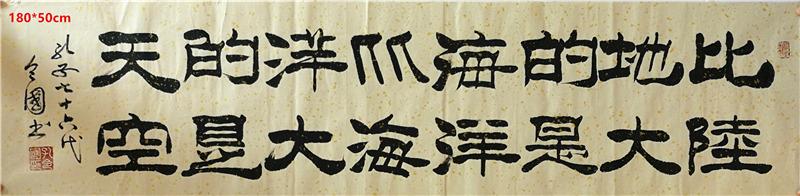 180*50cm
比陸
地大
的是
海洋
比海
洋大
的是
天空
孔子七十六代
令國书